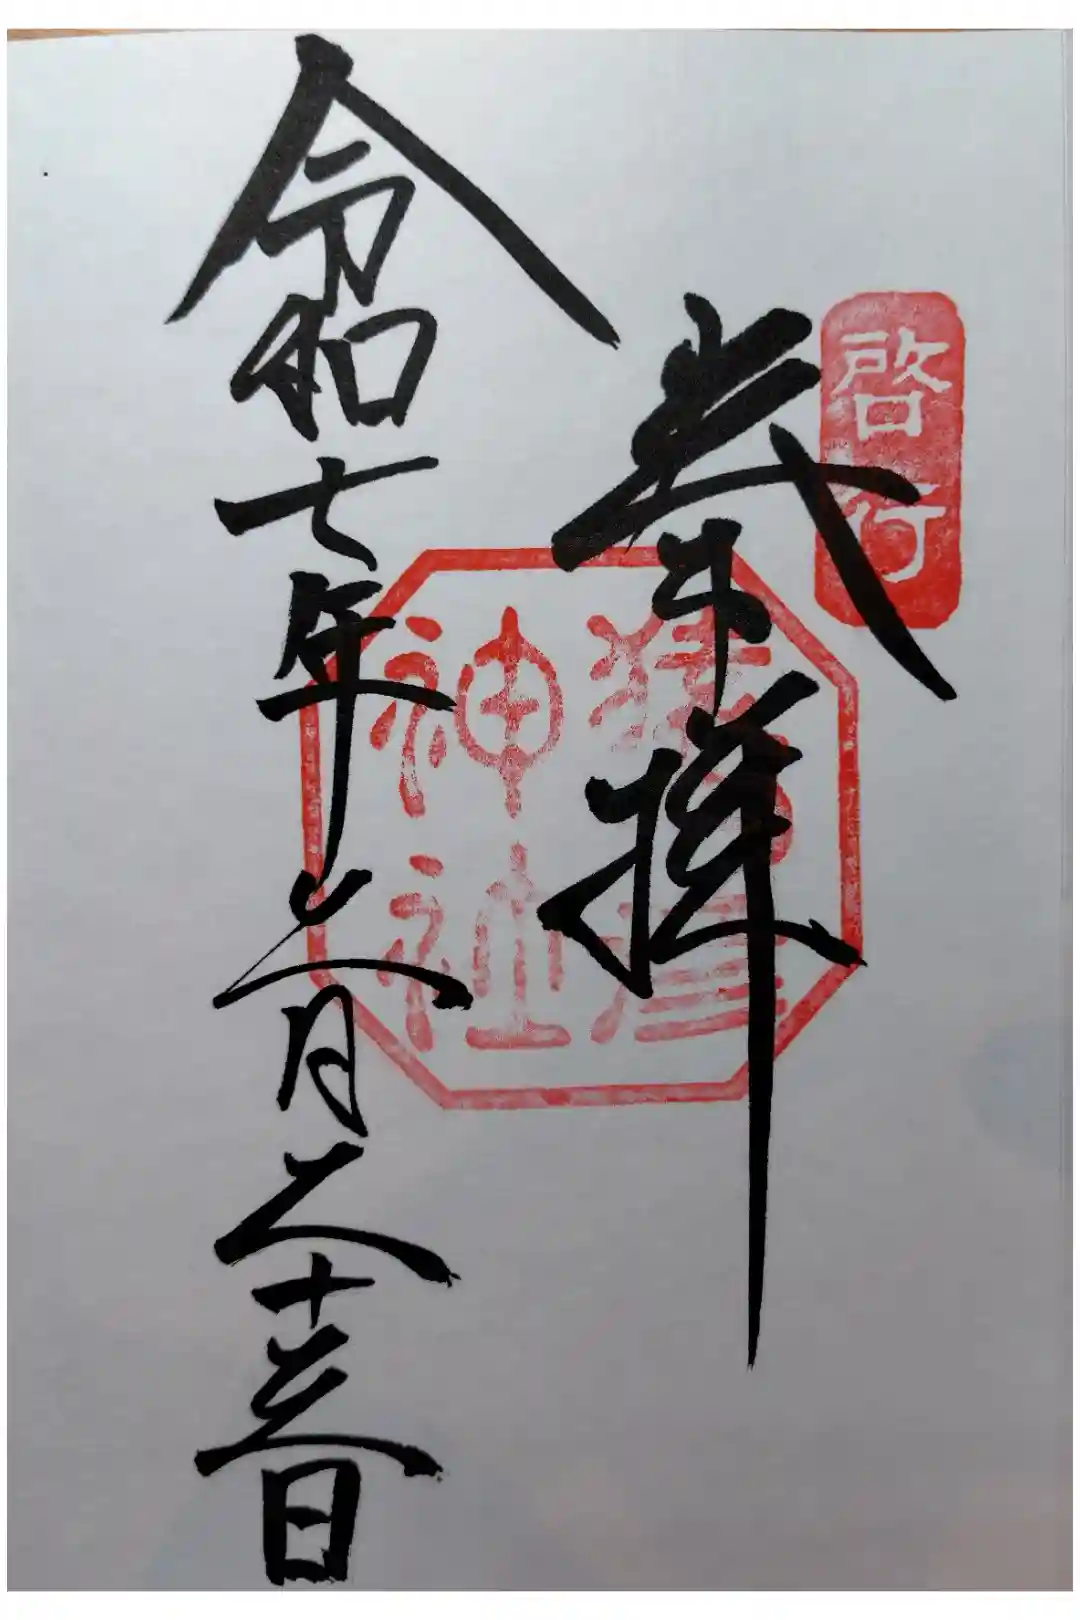 啓行
奉拝
猿田彦
神社
令和七年二月二十三日